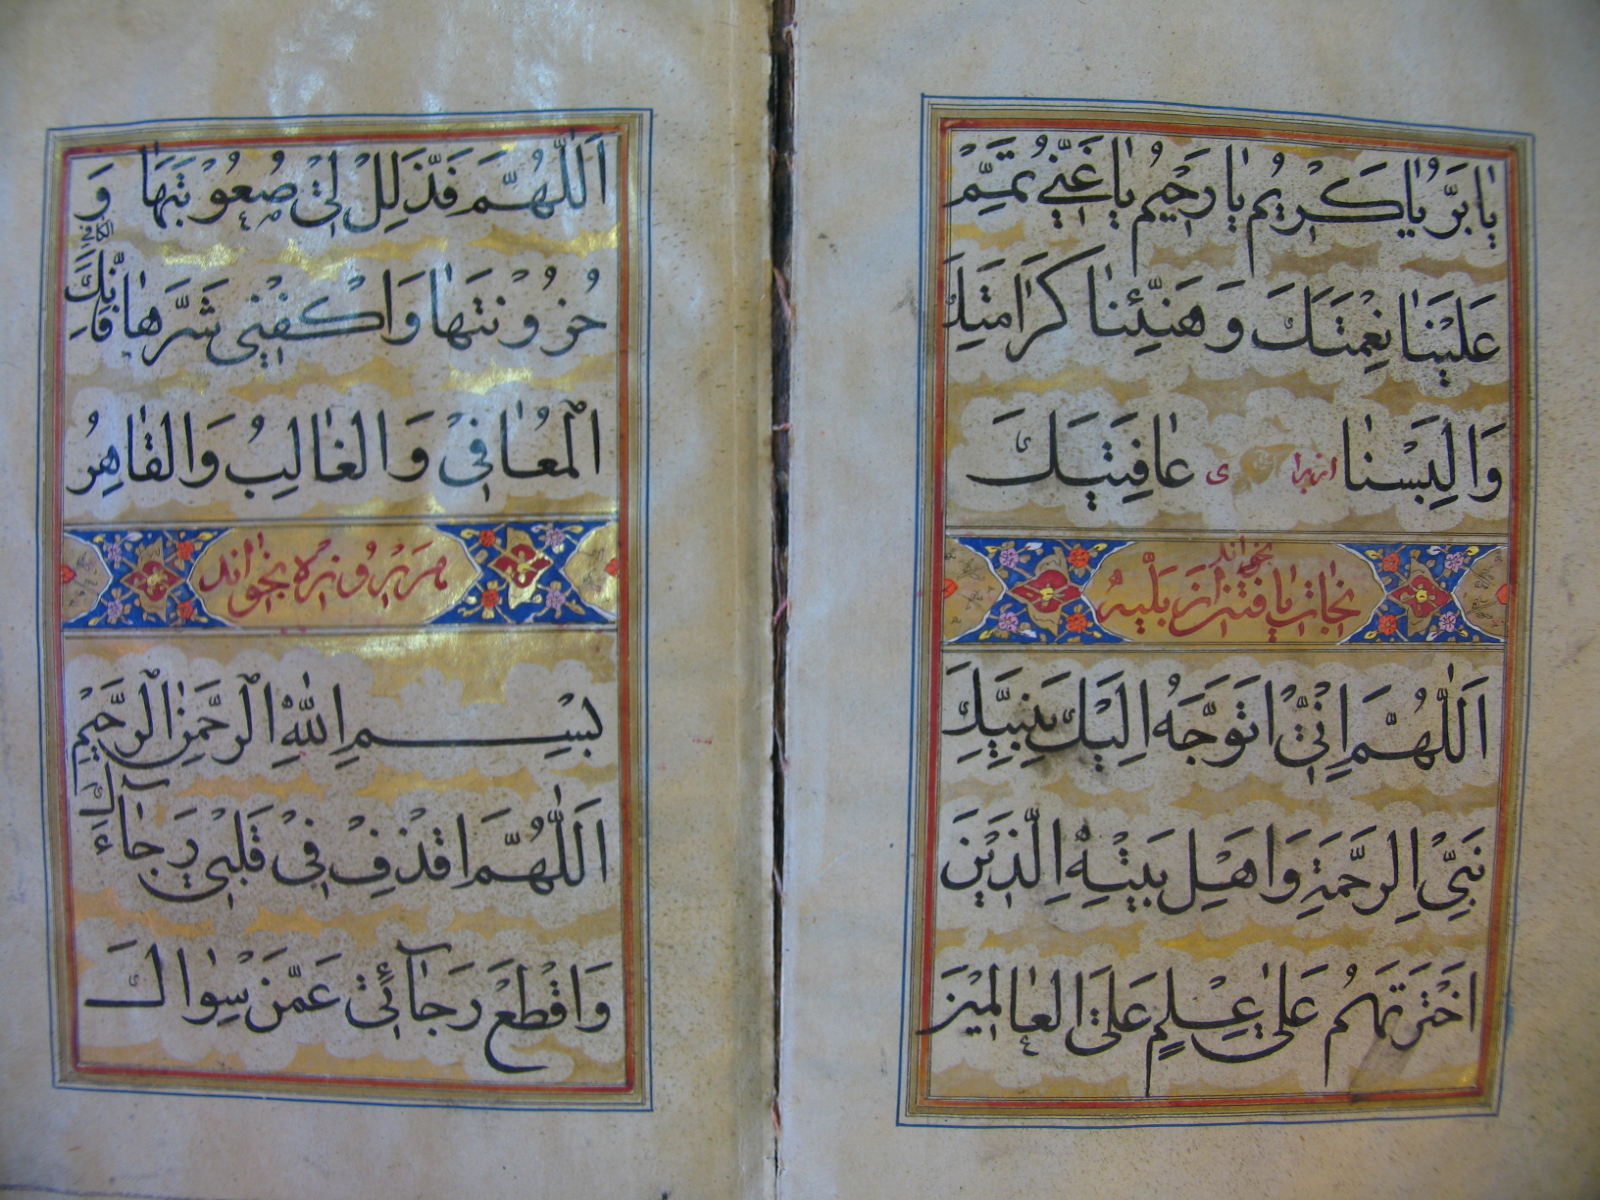 يٰا بَرُّ يٰا كَرْيُم يٰا رَحْيُم يٰا غَنِيُّ تَمِّمْ
عَلَيْنٰا نِعْمَتَكَ وَ هَنِّئْنٰا كَرٰامَتَكَ
وَ اَلْبِسْنٰا از برا ى عٰافِيَتَكَ
نجات يافتن از بليه بخواند
اَللّٰهُمَّ اِنّْى اَتَوَجَّهُ اِلَيْكَ بِنَبِيِّكَ
نَبِىِّ الرَّحْمَةِ وَ اَهْلِ بَيْتِهِ الَّذْينَ
اخْتَرْتَهُمْ عَلىٰ عِلْمٍ عَلَى الْعٰالَمْينَ
اَللّٰهُمَّ فَذَلِّلْ لْى صُعُوْبَتَهٰا وَ
حُزُوْنَتَهٰا وَ اكْفِنْى شَرَّهٰا فَاِنَّكَ الْكٰافْى
الْمُعٰافْى وَ الْغٰالِبُ وَ الْقٰاهِرُ
هر روزه بخواند
بِسْمِ اللّٰهِ الرَّحْمٰنِ الرَّحْيمِ
اَللّٰهُمَّ اقْذِفْ فْى قَلْبْى رَجٰآءَكَ
وَ اقْطَعْ رَجٰآئْى عَمَّنْ سِوٰاكَ